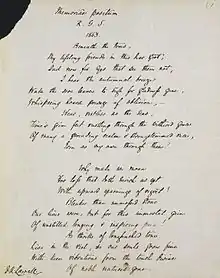 Memoriae positum
R. G. S.
1863.
Beneath the trees,
My lifelong friends in this dear spot,
Sad now for eyes that see them not,
I hear the autumnal breeze
Wake the sear leaves to sigh for gladness gone,
Whispering hoarse presage of oblivion,
Hear, restless as the seas,
Time's grim feet rustling through the withered grace
Of many a spreading realm and strong-stemmed race,
Even as my own through these.
Why make we moan
For loss that doth enrich us yet
With upward yearnings of regret?
Bleaker than unmossed stone
Our lives were but for this immortal gain
Of unstilled longing and inspiring pain!
As thrills of long-hushed tone
Live in the viol, so our souls grow fine
With keen vibrations from the touch divine
Of noble natures gone.
J. R. Lowell